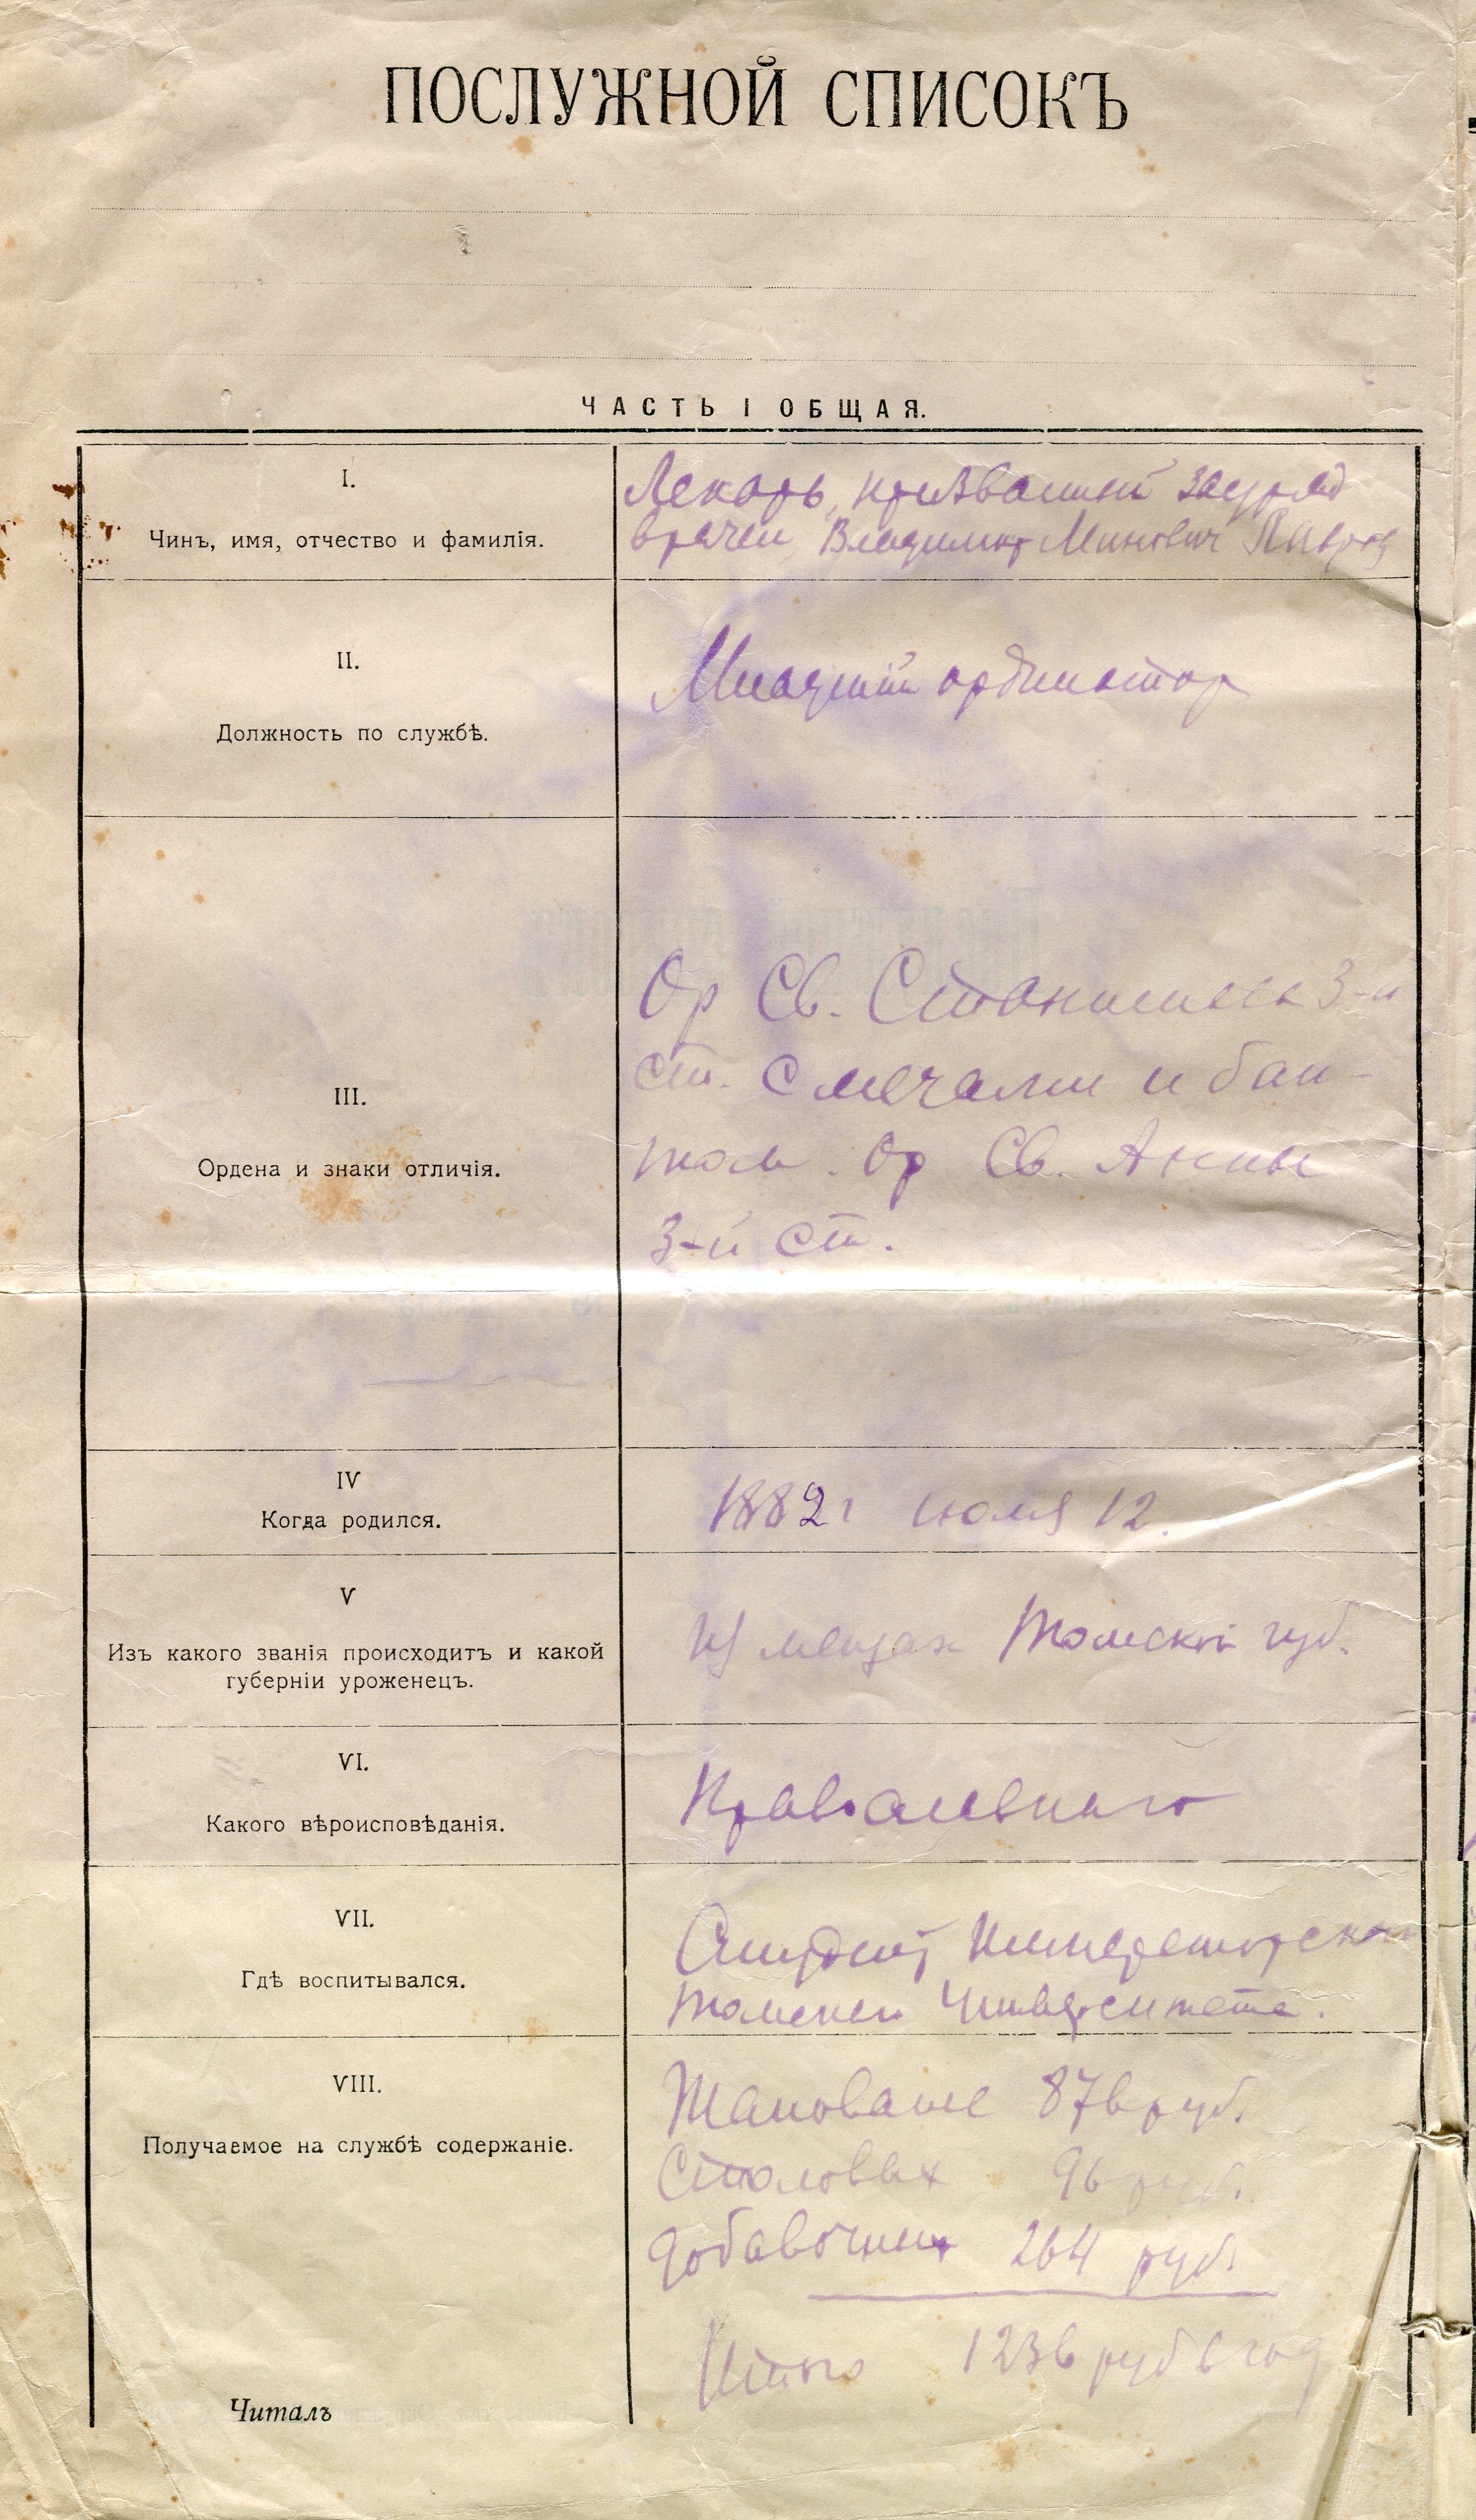 ПОСЛУЖНОЙ СПИСОКЪ
ЧАСТЬ I ОБЩАЯ.
I.
Чинъ, имя, отчество и фамилія.
Лекарь, призванный зауряд
врачем, Владимир Минович
II.
Должность по службѣ.
Младший ординатор
III.
Ордена и знаки отличія.
Ор Св. Станислава 3-й
ст. с мечами и бан-
том. Ор Св. Анны
3-й ст.
IV
Когда родился.
1882 г июля 12.
V
Изъ какого званія происходитъ и какой
губерніи уроженецъ.
Из мещан Томской губ.
VI.
Какого вѣроисповѣданія.
Православного
VII.
Гдѣ воспитывался.
Студент Императорского
Томского Университета.
VIII.
Получаемое на службѣ содержаніе.
Жалование 876 руб.
Столовых 96 руб.
добавочных 264 руб.
Итого 1236 руб в год
Читалъ